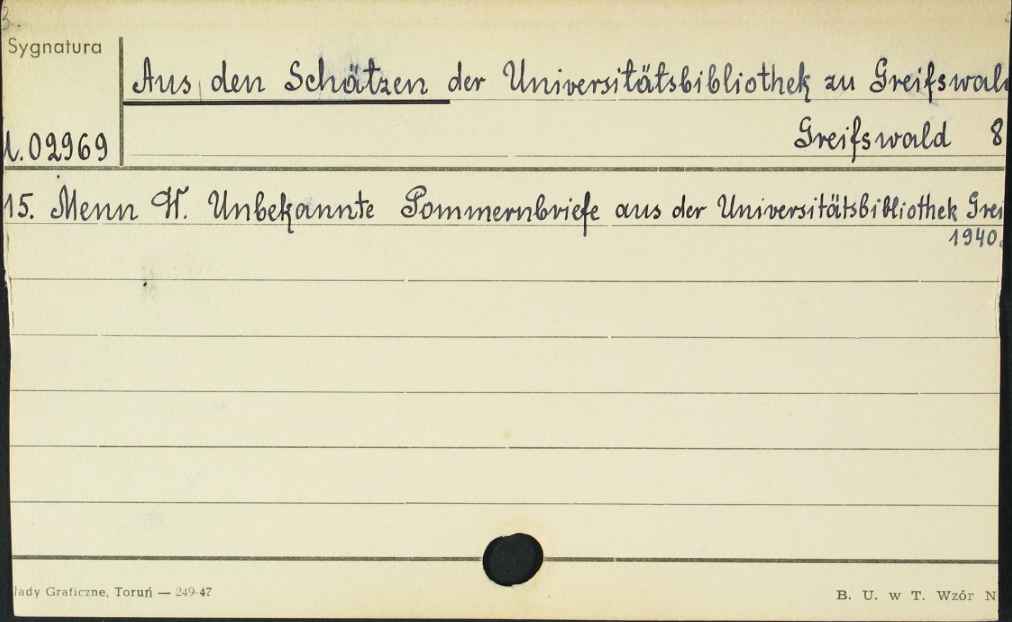 Sygnatura
Aus den Schätzen der Universitätsbibliothek zu Greifswald
Greifswald 8
1.02969
15. Menn W. Unbekannte Pommernbriefe aus der Universitätsbibliothek Grei
1940.
lady Graficzne, Toruń — 249-47
B. U. w T. Wzór N